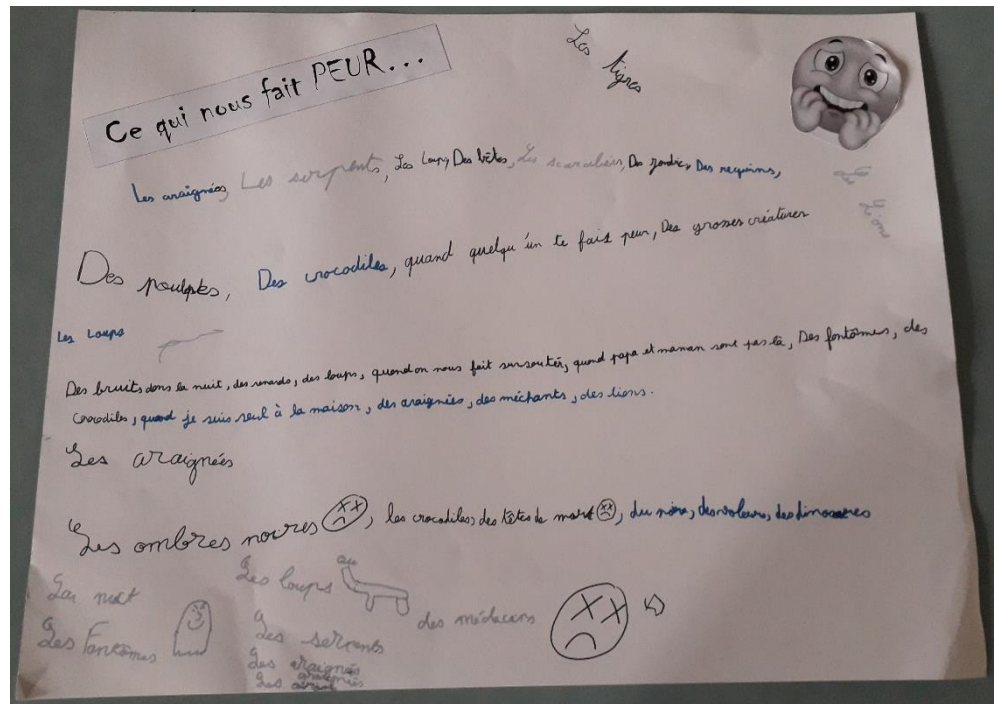 Ce qui nous fait PEUR...
Les tigres
Les araignées, Les serpents, Les Loups, Des bêtes, Les scarabées, Des requins,
Les Lions
Des poulpes, Des crocodiles, quand quelqu'un te fais peur, Des grosses créatures
Les Loups
Des bruits dans la nuit, des renards, des loups, quand on nous fait sursauter, quand papa et maman sont pas là, Des fontômes, des
crocodiles, quand je suis seul à la maison, des araignées, des méchants, des lions.
Les araignées
Les ombres noires, les crocodiles, des têtes de mort, du noire, des voleurs, des dinosaures
La nuit
Les loups
au
des médecins
Les Fantomes
Les serpents
Les araignés